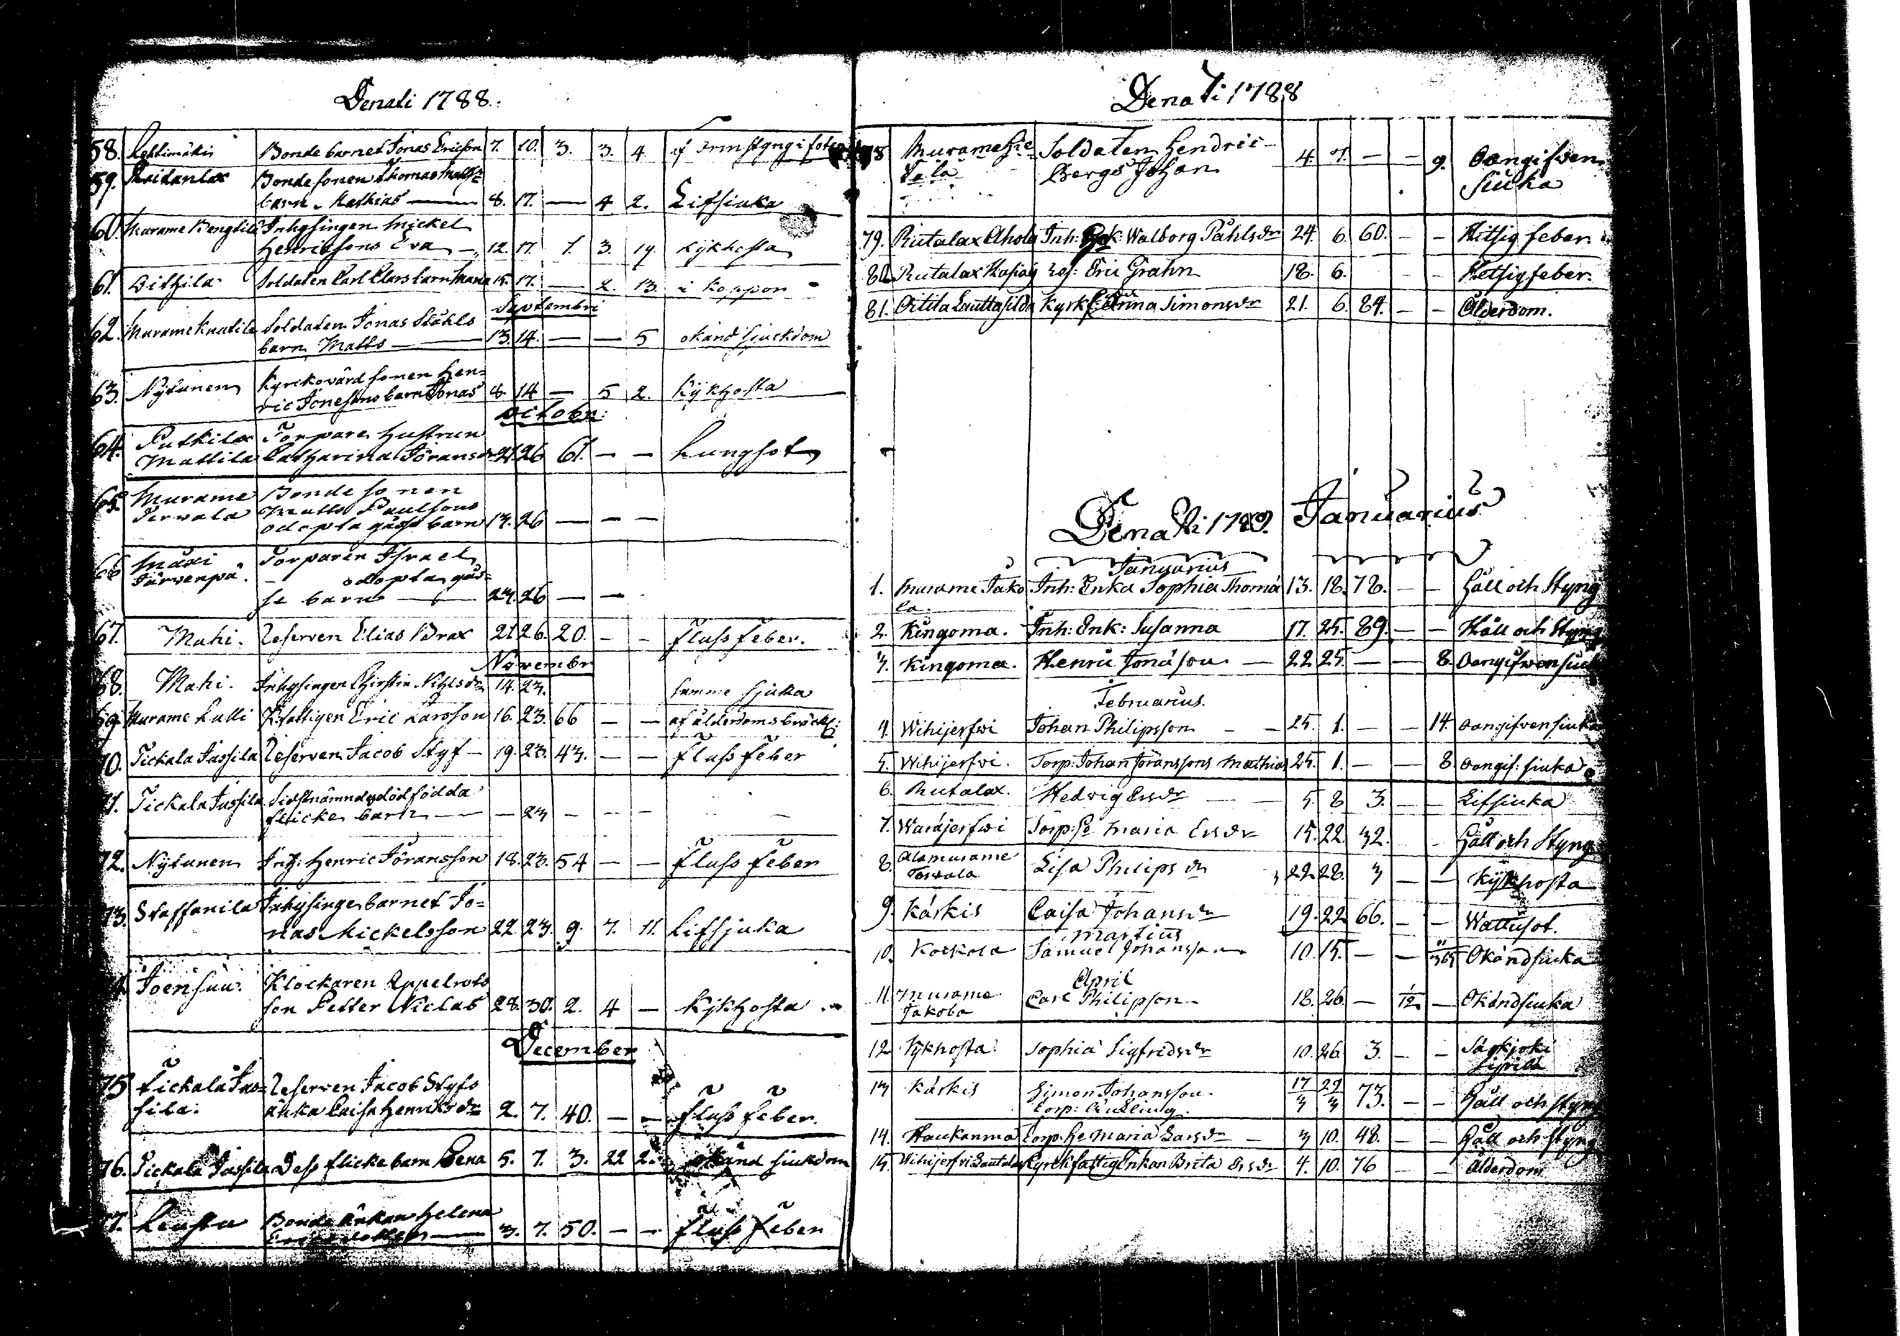 Denati 1788.
58. Lehtimäki Bonde barnet Jonas Ericson 7. 10. 3. 3. 4 af Ormstyng i foten
59. Bondesonen Thomas Matss:
barn Mathias 8. 17. — 4 2. Lifsiuka
60. Murame Inhysingen Mickel
Henricsons Eva 12. 17. 1 3. 19 Kykhosta
61. Soldaten Carl Clars barn Maria 15. 17. — 2. 13. i koppor
Septembri
62. Murame Knutila Soldaten Jonas Ståhls
barn Matts 13. 14. — — 5 okänd sjuckdom
63. Nytunen Kyrkovärd sonen Hen-
ric Jonessons barn Jonas 8. 14 — 5 2. Kykhosta
Octobr:
64. Putkila Torpare Hustrun
Mattila Catharina Göransdr 21. 26 61. — — Lungsot
65. Murame Bonde sonen
Terwala Matts Paulsons
odöpta gåsse barn 13. 26 — — —
66 Maxi Torparen Israel
Järvenpä. odöpta gås-
se barn 24. 26 — —
67. Mahi. Reserven Elias Brax 21. 26. 20. — — Flussfeber.
Novembr
68. Mahi. Inhysingen Christin Nihlsdr 14. 23. samme sjuka
69. Murame Lalli Eric Larsson 16. 23. 66 — — af ålderdoms bräckl:
70. Tickala Jussila Reserven Jacob Styf 19. 23. 43. — — Fluss Feber
71. Tickala Jussila Sidstnämndes dödfödda
flicke barn — 23 — — —
72. Nytunen Inh: Henric Göransson 18. 23. 54 — — Fluss Feber
73. Staffanila Inhysinge barnet Jo-
nas Mickelsson 22 23. 9. 7. 11. Lifsjuka
74. Joensuu Klockaren Appelrots
son Petter Niclas 28. 30. 2. 4 — Kykhosta
December
75 Tickala Jus- Reserven Jacob Styfs
sila: änka Caisa Henricsdr 2. 7. 40. — — Fluss Feber.
76. Tickala Jussila Dess flicke barn Lena 5. 7. 3. 22 2. okänd siukdom
77. Leusta Bonde änkan Helena
3. 7. 50. — — Fluss Feber
Denati 1788
78 Murame Hie- Soldaten Hendric
tala Bergs Johan 4 7. — — 9. Oangifven
Siuka
79. Rutalax Ahola Inh: Walborg Påhlsdr 24. 6. 60. — — Hitsig feber
80 Rutalax Res: Eric Grahn 18. 6. Hetsig feber.
81. Ostila Lauttasilda Kyrk: Anna Simonsdr 21. 6. 84. — — Ålderdom.
Denati 1789. Januarius
Januarius
1. Murame Jako Inh: Enka Sophia Thomä 13. 18. 78. — — Håll och Styng
la.
2. Kingoma. Inh: Enk: Susanna 17. 25. 89. — — Håll och Styng
3. Kingoma. Henric Jonäson — 22 25. — — 8. Oangifven siuka
Februarius.
4. Wihijerfwi Johan Philipsson — — 25. 1. — — 14. oangifven siuka
5. Wihijerfwi. Torp: Johan Göranssons Mathias 25. 1. — — 8. oangif: siuka
6. Rutalax. Hedvig Ersdr — — 5. 8 3. — — Lifsiuka
7. Warajerfwi Torp: Maria Ersdr 15. 22. 32. — — Håll och Styng
8. Alamurame Lisa Philipsdr 22. 28. 3 — — Kykhosta
Terwala
9. Kärkis Caisa Johansdr 19. 22 66. — — Wattusot.
Martius
10. Koskola Samuel Johansson 10. 15. — — Okändsiuka
April
11. Murame Carl Philipson 18. 26 — 1/12 — Okändsiuka
Jakola
12 Kykhosta Sophia Sigfridsdr 10. 26. 3. — —
13 Kärkis Simon Johansson 17/3 29/3 73. — — Håll och styng
14. Haukanma Torp: he Maria Larsdr — 3 10. 48. — — Håll och styng
15. Wihijerfvi Lautala Kyrckfattig Enkan Brita Ersdr 4. 10. 76 — — Ålderdom